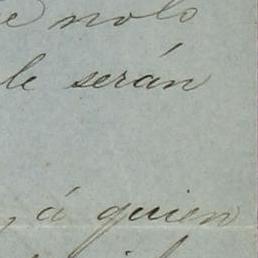 e nolo
le serán
, á quien